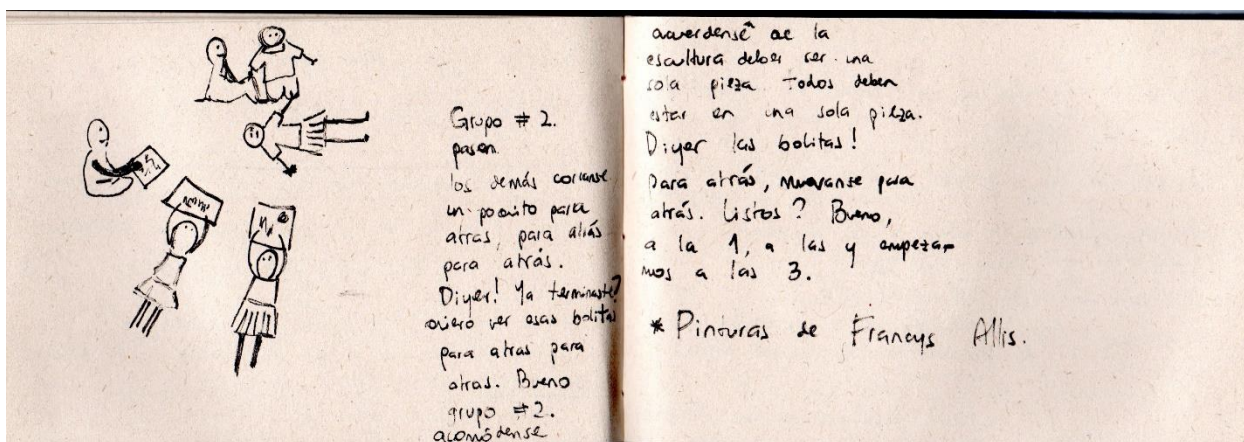 Grupo # 2.
pasen
los demás corranse
un poquito para
atras, para atrás
para atrás.
Diyer! Ya terminaste?
quiero ver esas bolitas
para atras para
atras. Bueno
grupo # 2.
acomódense
acuerdense de la
escultura deber ser una
sola pieza. Todos deben
estar en una sola pieza.
Diyer las bolitas!
Para atrás, muevanse para
atrás. Listos? Bueno,
a la 1, a las y empeza-
mos a las 3.
* Pinturas de Francys Allis.